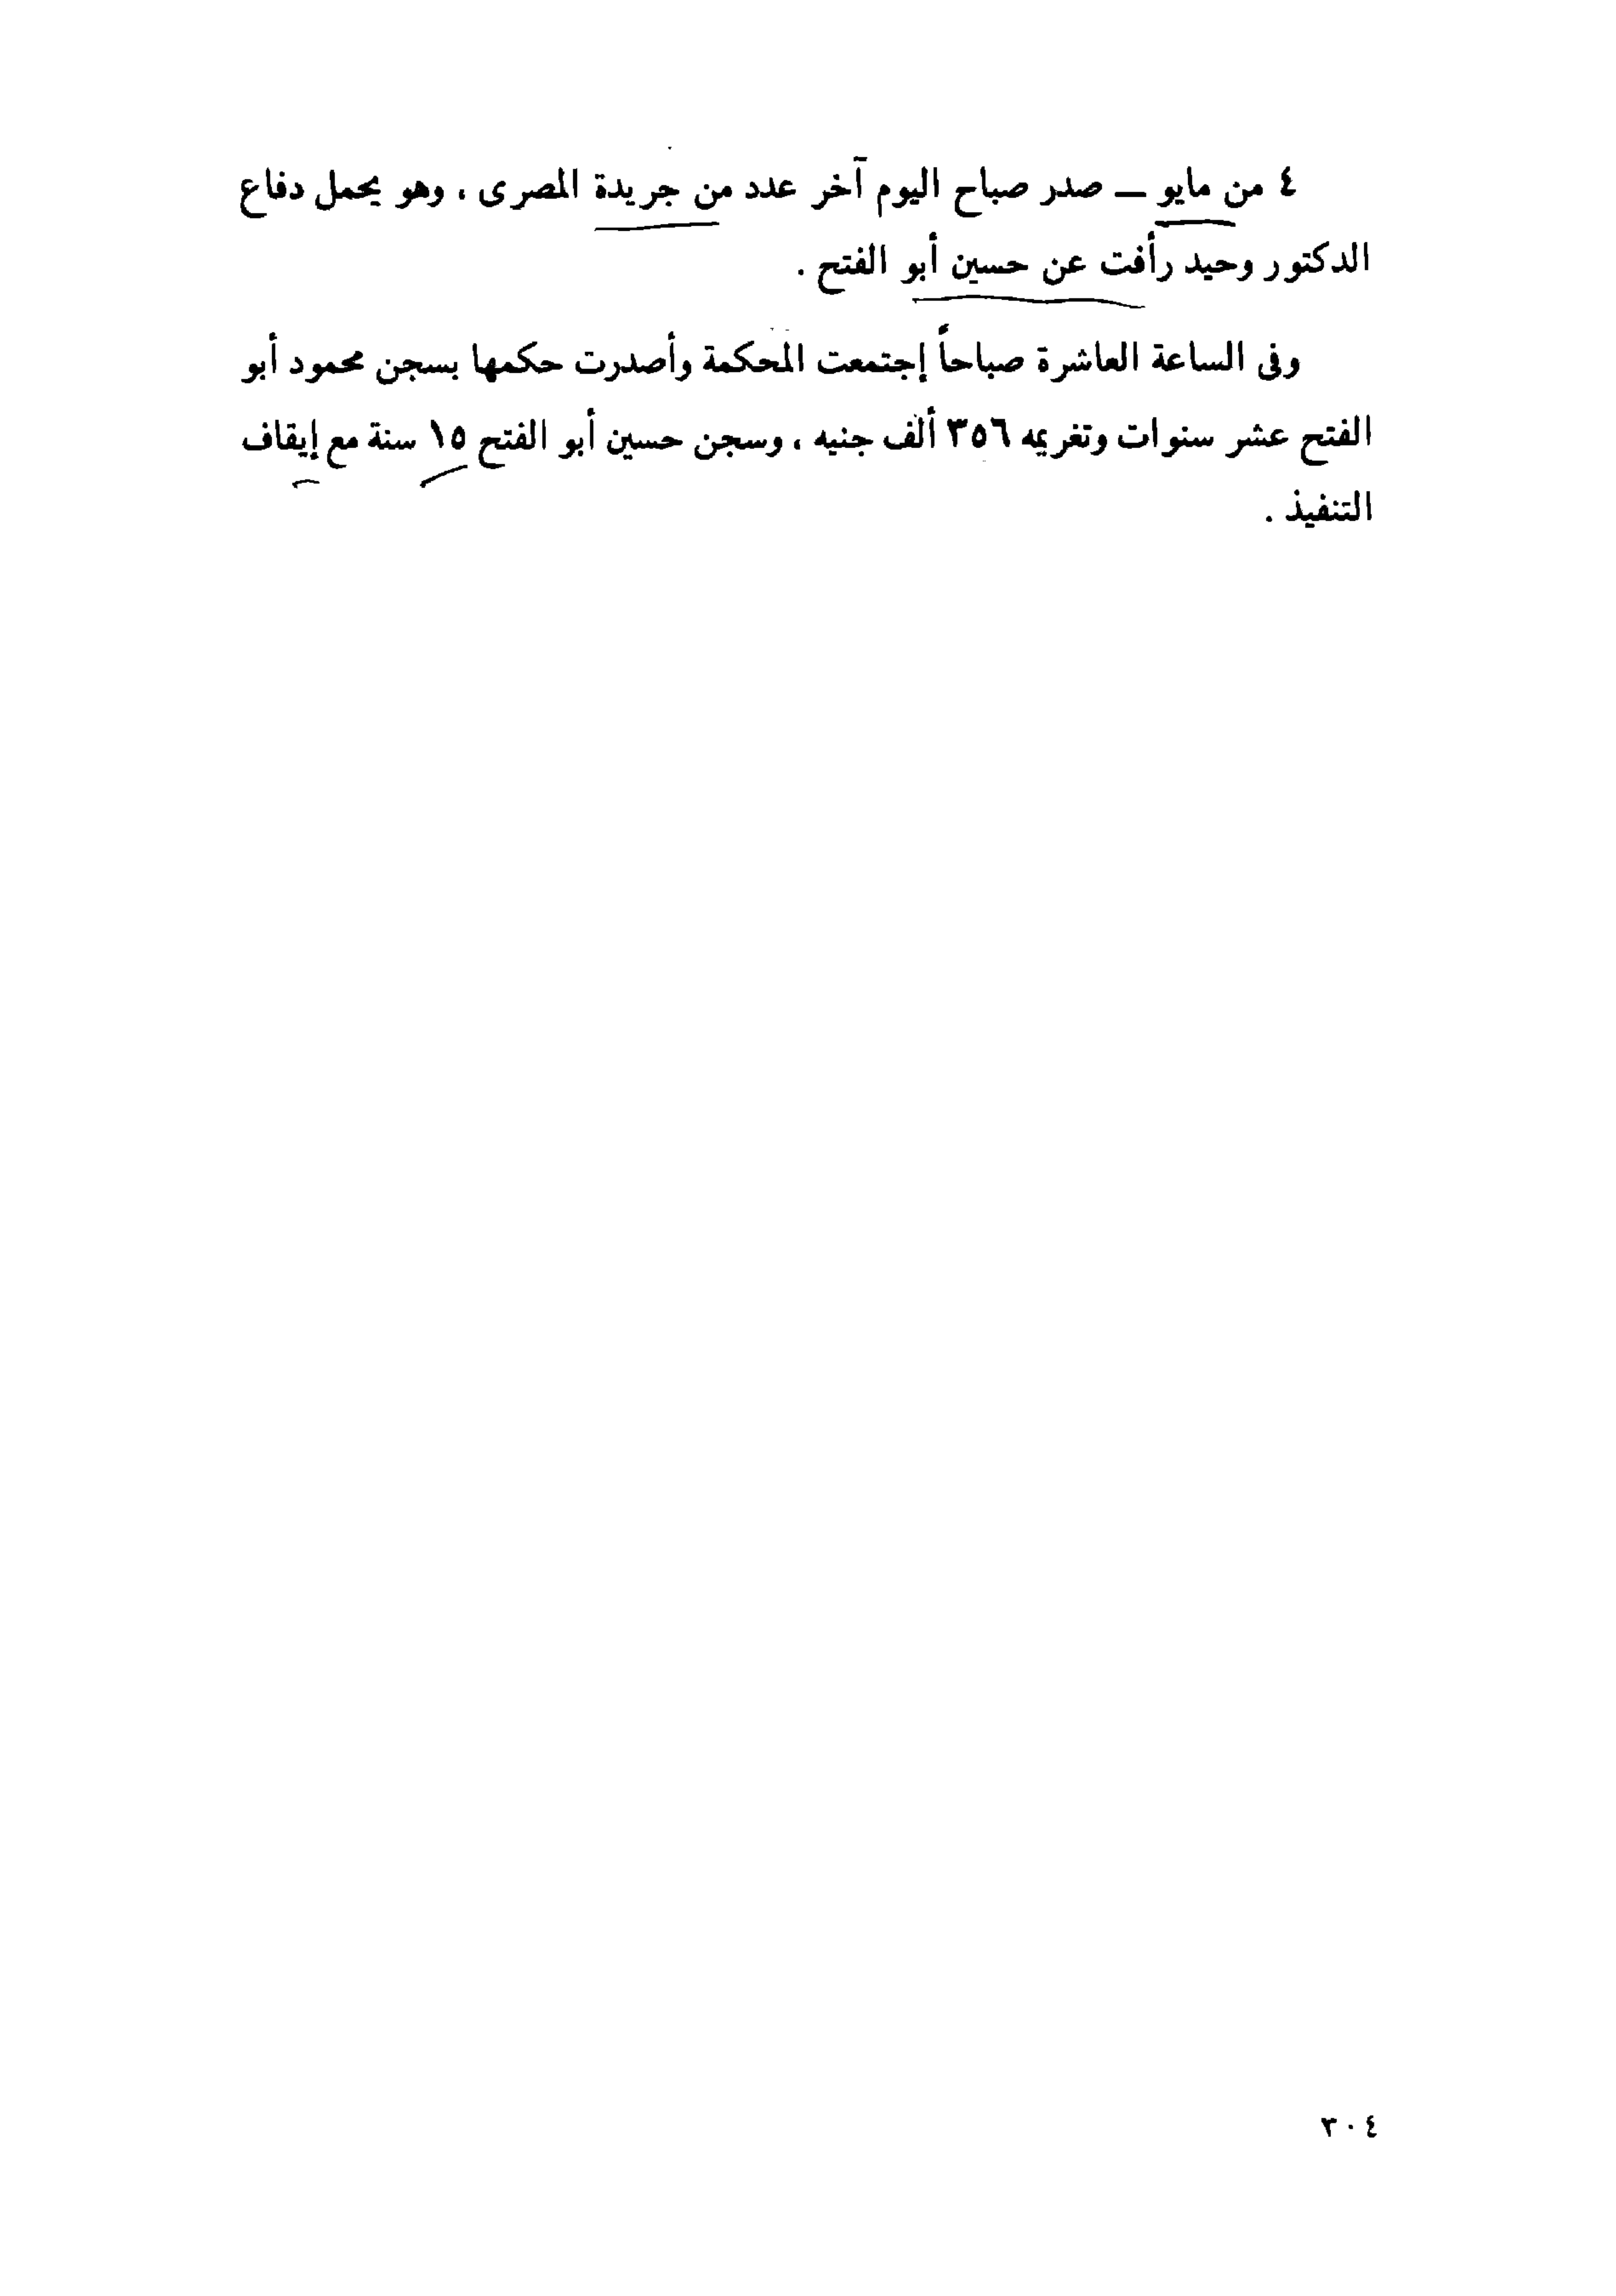 ٤ من مايو — صدر صباح اليوم آخر عدد من جريدة المصرى ، وهو يحمل دفاع
الدكتور وحيد رأفت عن حسين أبو الفتح .
وفى الساعة العاشرة صباحاً إجتمعت المحكمة وأصدرت حكمها بسجن محمود أبو
الفتح عشر سنوات وتغريمه ٣٥٦ ألف جنيه ، وسجن حسين أبو الفتح ١٥ سنة مع إيقاف
التنفيذ .
٣٠٤